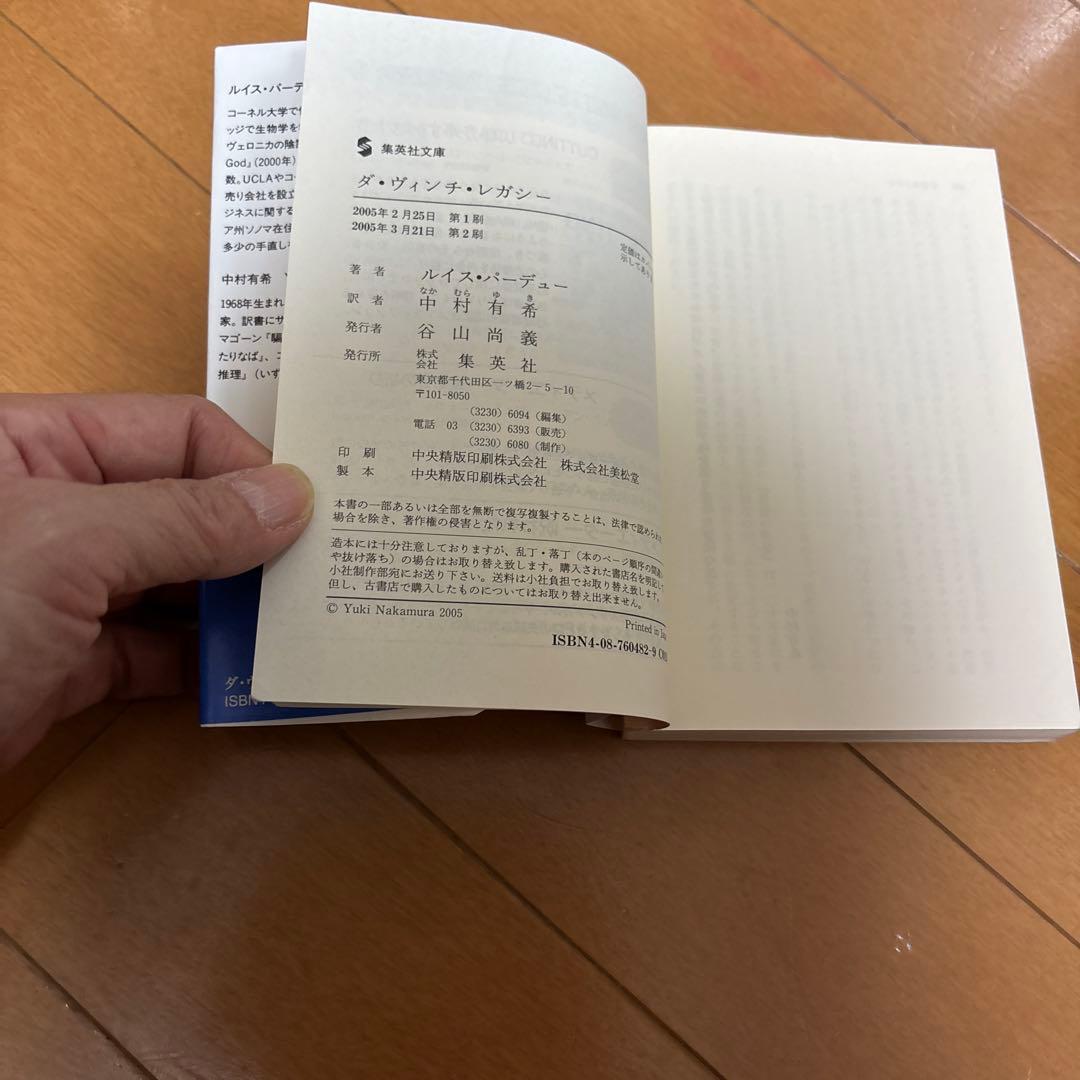 ルイス・パーデ
コーネル大学で
ッジで生物学を
ヴェロニカの陰
God』(2000年)
数。UCLAやコー
売り会社を設立
ジネスに関する
ア州ソノマ在住
多少の手直し
中村有希
1968年生まれ
家。訳書にサ
マゴーン『騙
たりなば』、コ
推理』(いず
ISBN
集英社文庫
ダ・ヴィンチ・レガシー
2005年2月25日 第1刷
2005年3月21日 第2刷
定価はカ
示してあり
著者 ルイス・パーデュー
なか むら ゆ き
訳者 中村有希
発行者 谷山尚義
発行所 株式会社 集英社
東京都千代田区一ツ橋2-5-10
〒101-8050
(3230)6094(編集)
電話 03 (3230)6393(販売)
(3230)6080(制作)
印刷 中央精版印刷株式会社 株式会社美松堂
製本 中央精版印刷株式会社
本書の一部あるいは全部を無断で複写複製することは、法律で認められた
場合を除き、著作権の侵害となります。
造本には十分注意しておりますが、乱丁・落丁(本のページ順序の間違い
や抜け落ち)の場合はお取り替え致します。購入された書店名を明記して
小社制作部宛にお送り下さい。送料は小社負担でお取り替え致します。
但し、古書店で購入したものについてはお取り替え出来ません。
© Yuki Nakamura 2005
Printed in
ISBN4-08-760482-9